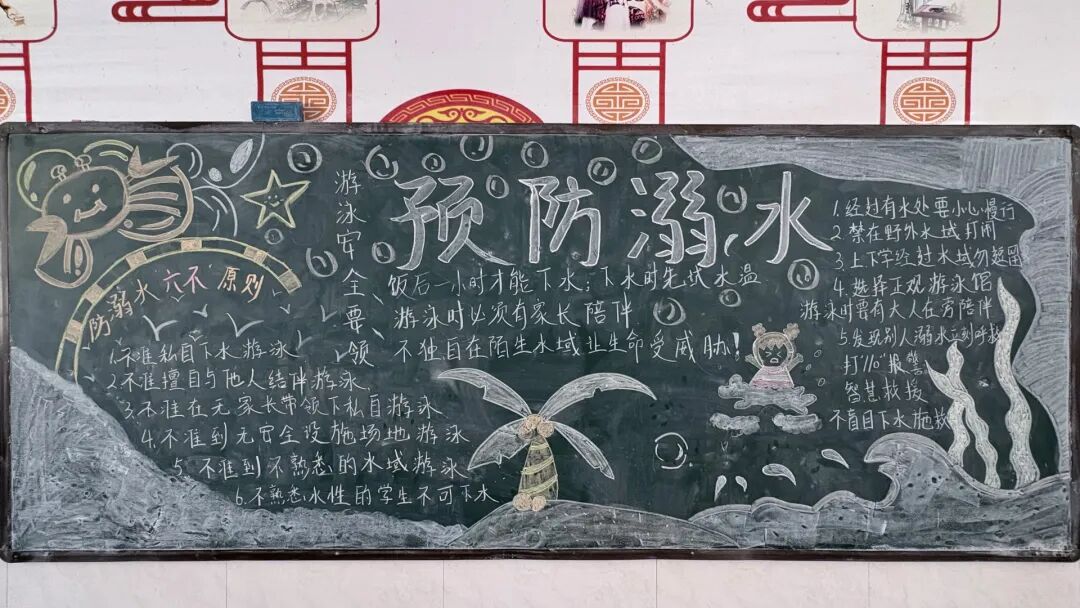 预防溺水
防溺水“六不”原则
1.不准私自下水游泳
2.不准擅自与他人结伴游泳
3.不准在无家长带领下私自游泳
4.不准到无安全设施场地游泳
5.不准到不熟悉的水域游泳
6.不熟悉水性的学生不可下水
游泳安全要领
饭后一小时才能下水;下水时先试水温
游泳时必须有家长陪伴
不独自在陌生水域让生命受威胁!
1.经过有水处要小心慢行
2.禁在野外水域打闹
3.上下学经过水域勿逗留
4.选择正观游泳馆
游泳时要有大人在旁陪伴
5.发现别人溺水立刻呼救
打“110”报警
智慧救援
不盲目下水施救